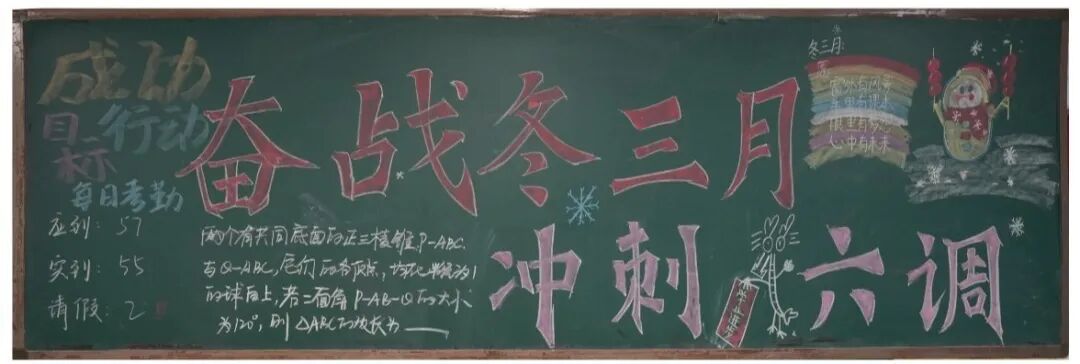 成功
行动
目标
每日考勤
应到: 57
实到: 55
请假: 2
奋战冬三月
冲刺六调
两个有共同底面的正三棱锥P-ABC
与Q-ABC,它们的各顶点,均在半径为1
的球面上,若二面角P-AB-Q的大小
为120°,则△ABC的边长为
冬三月:
窗外有风雪
桌里有课本
眼里有
心中有未来